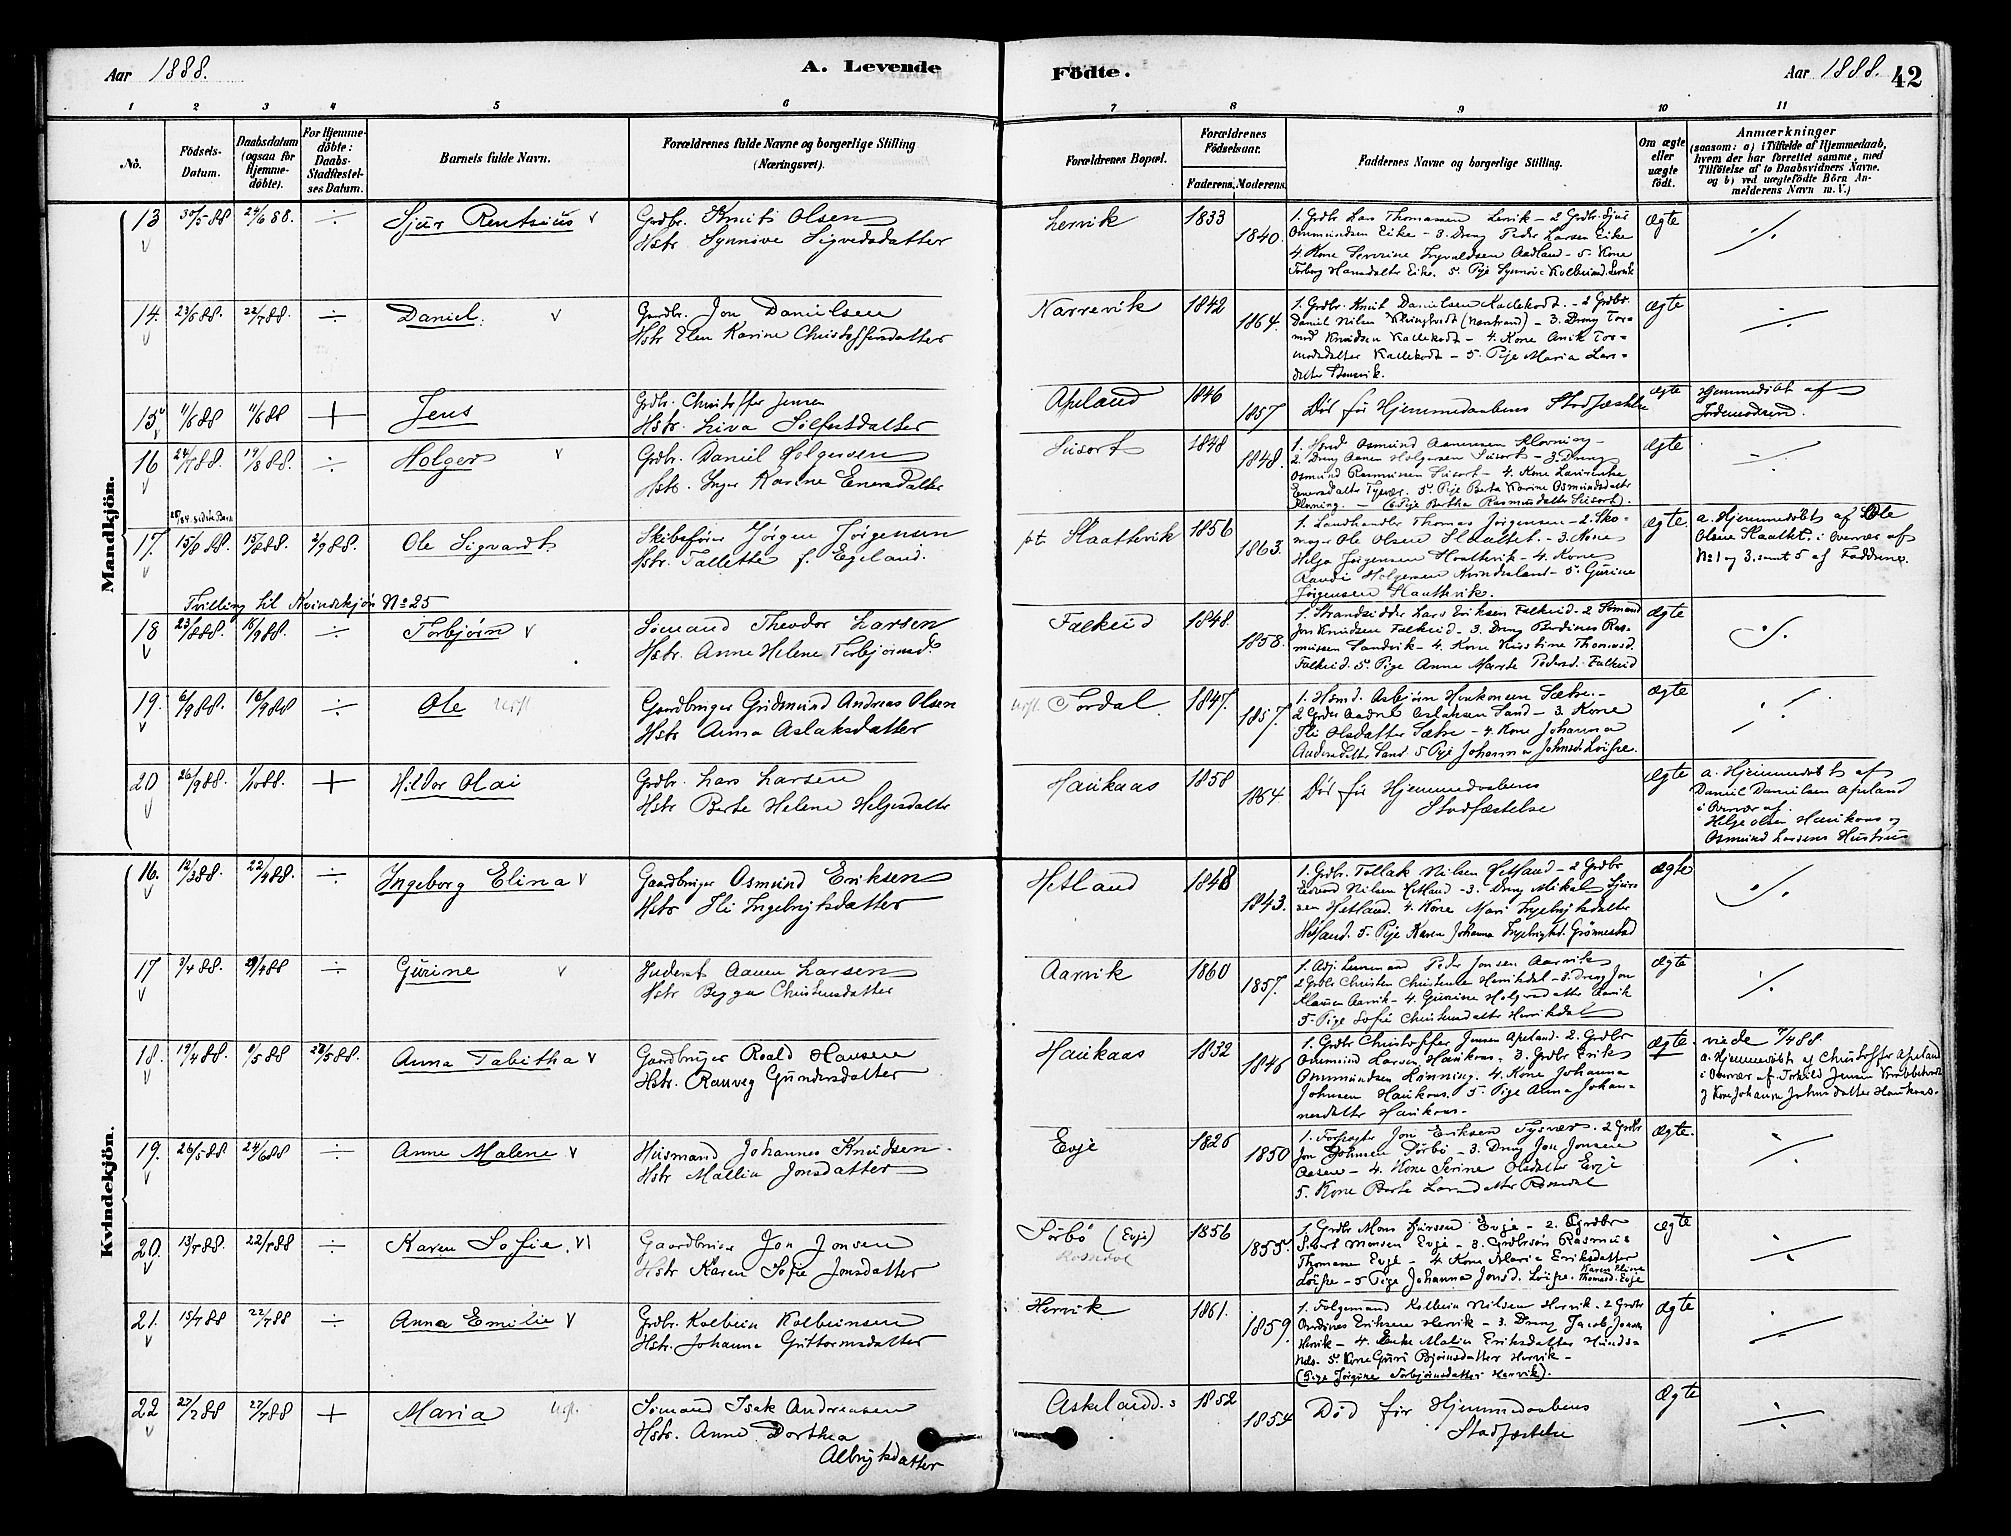 Aar 1888.
A. Levende
Födte.
Aar 1888.
42
1 2 3 4 5 6 7 8 9 10 11
No.
Födsels-
Datum.
Daabsdatum
(ogsaa for
Hjemme-
döbte).
For Hjemme-
döbte:
Daabs-
Stadfæstel-
ses Datum.
Barnets fulde Navn.
Forældrenes fulde Navne og borgerlige Stilling
(Næringsvei).
Forældrenes Bopæl.
Forældrenes
Födselsaar.
Faderens. Moderens.
Faddernes Navne og borgerlige Stilling.
Om ægte
eller
uægte
födt.
Anmærkninger
(saasom: a) i Tilfælde af Hjemmedaab,
hvem der har forrettet samme, med
Tilföielse af to Daabsvidners Navne.
og b) ved uægtefödte Börn An-
melderens Navn m. V.)
Mandkjön.
13 30/5 88 24/6 88. ÷ Sjur Rentzius v
Grdbr. Knut Olsen
Hstr. Synnöve Sigvedsdatter
Lervik 1833 1840.
1. Grdbr Lars Thomassen Lervik - 2 Grdbr. Sjur
Ommundsen Eike - 3. Dreng Peder Larsen Eike
4. Kone Severine Ingvaldsen Aadland - 5. Kone
Torborg Hansdatter Eike.
ægte
14. 23/5 88. 22/7 88. ÷ Daniel. v
Gardbr. Jon Danielsen
Hstr Elen Karine Christoffersdatter
Narrevik 1842 1864.
1. Grdbr. Knut Danielsen Kallekodt. - 2 Grdbr.
mod Knudsen Kallekodt - 4. Kone Anik Tor-
modsdatter Kallekodt - 5. Pige Maria Lars-
ægte
15 11/6 88 11/6 88 + Jens
Grdbr. Christoffer Jensen
Hstr. Liva Sölfestdatter
Apeland 1846 1857.
Död för Hjemmedaabens Stadfæstelse
ægte
Hjemmedöbt af
Jordemoderen.
16 19/8 88. ÷ Holger v
Grdbr. Daniel Holgersen
Hstr. Inger Karine Enersdatter
Susort 1848 1848.
1. Hsmd Osmund Asmussen Klovning -
2. Dreng Aanen Holgersen Susort - 3. Dreng
Osmund Rasmussen Susort - 4. Kone Lavrentse
Enersdatter Tysvær. 5. Pige Berta Karine Osmundsdatter
Klovning. - (6 Pige Bertha Rasmusdatter Susort).
ægte
17. 15/8 88. 15/8 88. 2/9 88. Ole Sigvardt
Skibsförer Jørgen Jørgensen
Hstr. Tallette f. Egeland.
pt. Slaattevik 1856 1863.
1. Landhandler Thomas Jørgensen - 2. Sko-
mager Ole Olsen Slaattet. - 3. Kone
Helga Jørgensen Slaattevik - 4. Kone
Randi Holgersen Kvindesland - 5. Gurine
Jørgensen Slaattevik.
ægte.
a. Hjemmedöbt af Ole
Olsen Slaattet i Overvær af
No 1 og 3. samt 5 af Fadderne.
Tvilling til Kvindekjön No 25
18 23/8 88. 16/9 88. ÷ Torbjörn v
Sömand Theodor Larsen
Hstr. Anne Helene Torbjörnsd.
Falkeid 1848. 1858.
1. Strandsidder Lars Eriksen Falkeid - 2 Sömand
Jon Knudsen Falkeid - 3. Dreng Berdines Ras-
mussen Sandvik - 4. Kone Kirstine Thomasd.
Falkeid. 5. Pige Anne Marte Pedersd. Falkeid
ægte
19. 6/9 88. 16/9 88 ÷ Ole
Gaardbruger Gudmund Andreas Olsen
Hstr Anna Aslaksdatter
Fordal. 1847. 1857.
1. Hsmd. Asbjörn Haakonsen Sætre. -
2 Grdbr Aadne Aslaksen Sand - 3. Kone
Ili Olsdatter Sætre - 4. Kone Johanna
ægte
20 26/9 88. 1/10 88. + Hildor Olai
Grdbr. Lars Larsen
Hstr Berte Helene Helgesdatter
Haukaas 1858 1864.
Död för Hjemmedaabens
Stadfæstelse
ægte
a. Hjemmedöbt af
Daniel Danielsen Apeland
i Overvær af
Helge Olsen Haukaas og
Osmund Larsens Hustru
Kvindekjön.
16. 12/3 88. 22/4 88. ÷ Ingeborg Elina v
Gaardbruger Osmund Eriksen
Hstr Ili Ingebrigtsdatter
Hetland 1848 1843.
1. Grdbr. Tollak Nilsen Hetland - 2 Grdbr
Eivind Nilsen Hetland - 3. Dreng Mikal Sjurs-
sen Hetland. 4. Kone Mari Ingebrigtsdatter
Hetland. 5. Pige Karen Johanna Ingebrigtsd. Grönnestad
ægte
17 2/4 88. 29/4 88 ÷ Gurine v
Inderst Aanen Larsen
Hstr Begga Christensdatter
Aarvik 1860 1857.
2 Grdbr Christen Christensen Hervikdal - 3. Dreng Jon
Klausen Aarvik - 4. Gurine Holgersdatter Aarvik
5. Pige Sofie Christensdatter Hervikdal
ægte
18. 19/4 88. 9/5 88 28/5 88. Anna Tabitha v
Gaardbruger Roald Hansen
Hstr. Ranveg Gundersdatter
Haukaas 1832 1846
1. Grdbr Christoffer Jensen Apeland. 2. Grdbr
Ommund Larsen Haukaas. 3. Grdbr Erik
Ommundsen Hönning. 4. Kone Johanna
Johnsen Haukaas. 5. Pige Anna Johan-
nesdatter Haukaas.
ægte
viede 7/4 88.
a. Hjemmedöbt af Christoffer Apeland
i Overvær af Torkild Jensen
og Kone Johanna Johnsdatter Haukaas.
19. 26/5 88 24/6 88 ÷ Anne Malene v
Husmand Johannes Knudsen
Hstr Mallin Jonsdatter
Evje 1826 1850
1. Forpagter Jon Eriksen Tysvær. 2 Grdbr
Jon Johnsen Sörbö - 3. Dreng Jon Jonsen
Aasen - 4. Kone Serine Olsdatter Evje
5. Kone Berte Larsdatter Rossedal
ægte.
20. 13/7 88. 22/7 88 ÷ Karen Sofie. v
Gaardbruger Jon Jonsen
Hstr Karen Sofie Jonsdatter
Sörbö (Evje)
Rossedal
1856 1855.
1. Grdbr Mons Sjurssen Evje - 2. Grdbr
Sjurt Monsen Evje - 3. Grdbrsön Rasmus
Thomasen Evje - 4 Kone Marie Eriksdatter
Löifre - 5 Pige Johanna Jonsd. Löifre. Karen Eline
Thomasd. Evje
ægte
21. 15/7 88 22/7 88 ÷ Anna Emilie v
Grdbr. Kolbein Kolbeinsen
Hstr. Johanna Guttormsdatter
Hervik 1861. 1859.
1. Folgemand Kolbein Nilsen Hervik. 2 Grdbr
Berdines Eriksen Hervik - 3. Dreng Jacob Jonsen
Hervik - 4. Enke Malin Eriksdatter Hunds-
nes. 5. Kone Guri Bjömsdatter Hervik -
(Pige Jørgine Torbjörnsdatter Hervik).
ægte
22 27/7 88 27/7 88 + Maria
Sömand Isak Andreassen
Hstr. Anne Dorthea
Albrigtsdatter
Askeland. 1852 1854
Död för Hjemmedaabens
Stadfæstelse
ægte